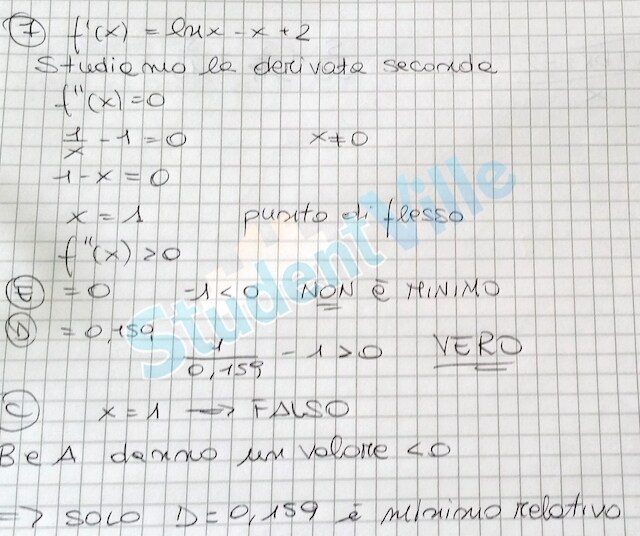 7 f'(x) = ln x - x + 2
Studiamo la derivata seconda
f''(x) = 0
1/x - 1 = 0 x ≠ 0
1 - x = 0
x = 1 punto di flesso
f''(x) > 0
E = 0 -1 < 0 NON È MINIMO
D = 0,159 1/0,159 - 1 > 0 VERO
C x = 1 → FALSO
B e A danno un valore < 0
⇒ SOLO D = 0,159 è minimo relativo
StudentVille